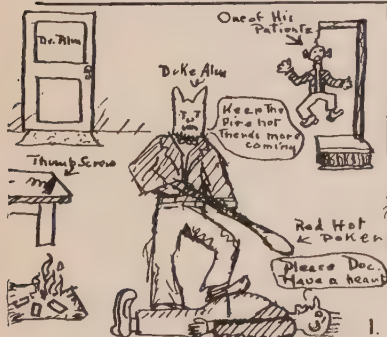 Dr. Alm
One of His
Patients
Duke Alm
Keep The
Fire hot
Thends more
coming
Thump Screw
Red Hot
Poker
Please Doc.
Have a heart
1.